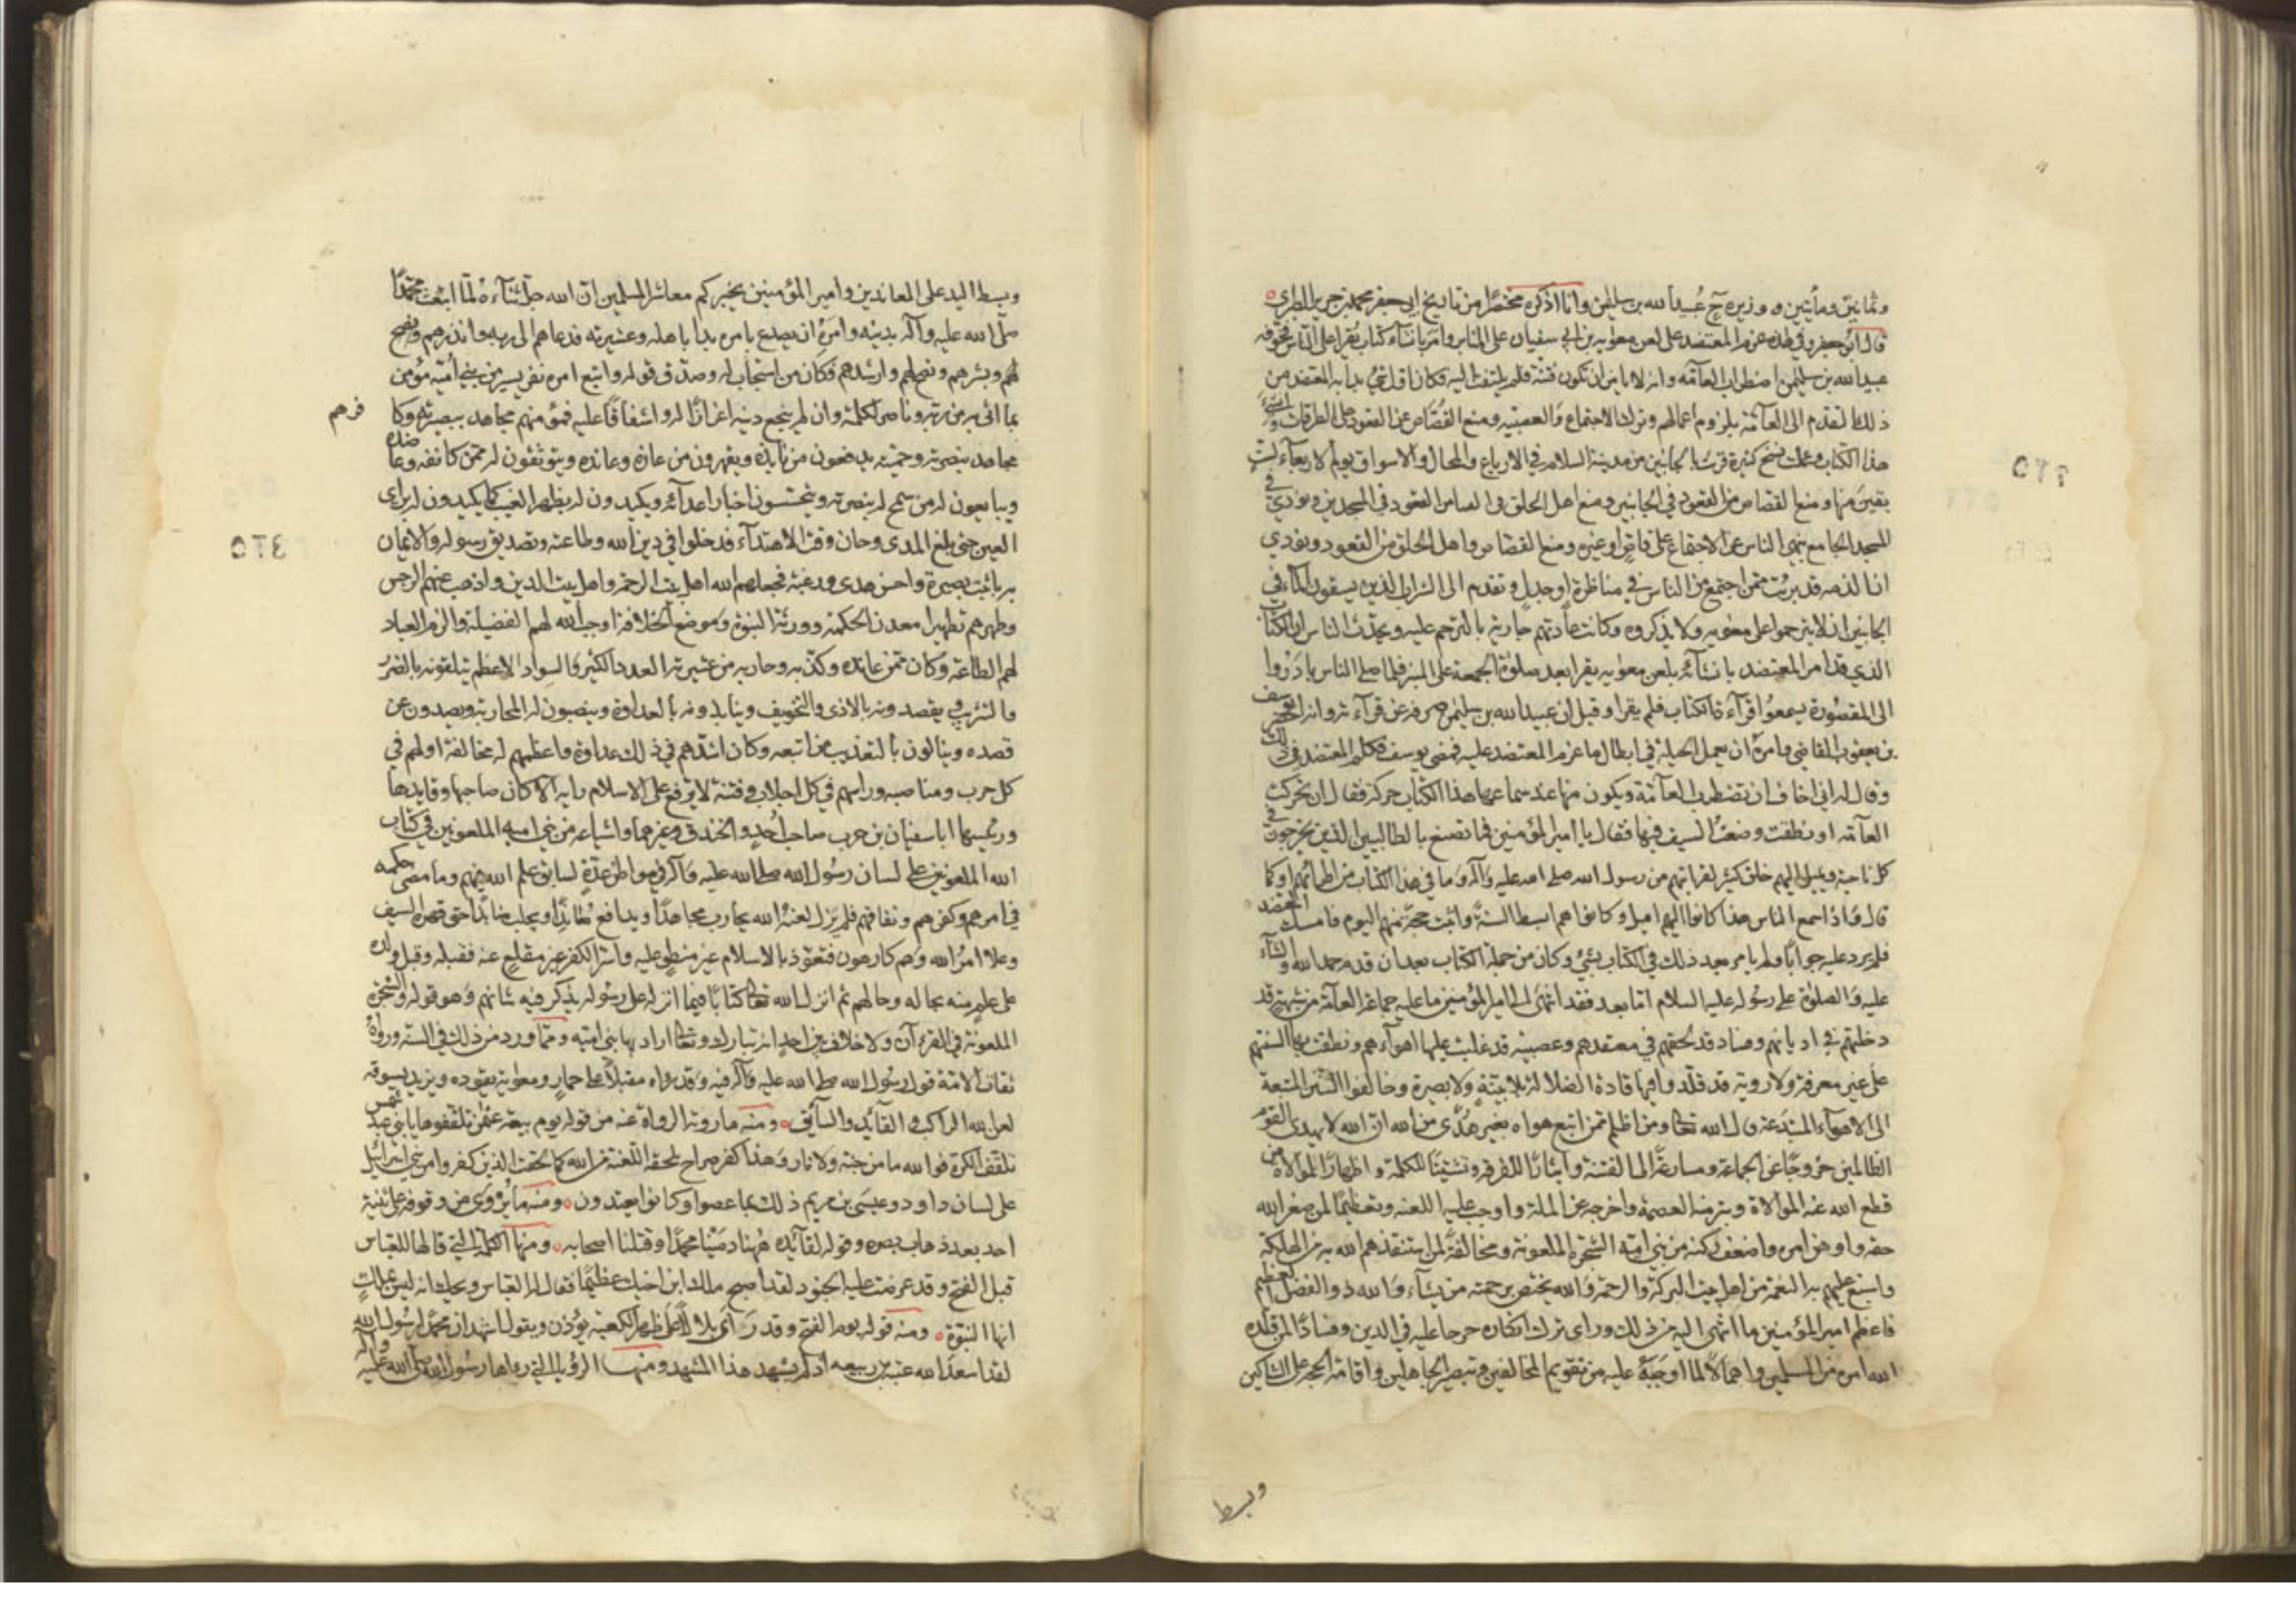 وثمانين ومأتين ووزيره ح عُبيد الله بن سليمن وانا اذكره مختصرًا من تاريخ ابي جعفر محمد بن جرير الطبري
قال ابو جعفر وفي هذه عزم المعتضد على لعن معوية بن ابي سفيان على المنابر وامر بانشاء كتاب يُقرا على الناس فخوفه
عبيد الله بن سليمن اضطراب العامه وانه لا يامن ان تكون فتنة فلم يلتفت اليه فكان اول شئ بدا به المعتضد من
ذلك التقدم الى العآمّة بلزوم اعمالهم وترك الاجتماع والعصبيه ومنع القُصّاص عن القعود على الطرقات وانشئ
هذا الكتاب وعملت نسخ كثيرة قرئت بالجانبين من مدينة السلام في الارباع والمحال والاسواق يوم الاربعاء لستٍ
بقين منها ومنع القصاص من القعود في الجانبين ومنع اهل الحلق من القعود في المسجدين ونودي في
المسجد الجامع بنهي الناس عن الاجتماع على قاصٍ او غيره ومنع القصاص واهل الحلق من القعود ونودي
ان الذمه قد برئت ممن اجتمع من الناس في مناظرة او جدل وتقدم الى الشراب الذين يسقون الماء في
الجانبين ان لا يترحموا على معويه ولا يذكروه وكانت عادتهم جارية بالترحم عليه وتحدّث الناس ان الكتاب
الذي قد امر المعتضد بانشآئه بلعن معويه يقرا بعد صلوة الجمعة على المنبر فلما صلى الناس بادَرُوا
الى المقصُورة ليسمعُوا قرآءة الكتاب فلم يقرا وقيل ان عبيد الله بن سليمن صرفه عن قرآءته وانه احضر يوسف
بن يعقوب القاضي وامره ان يعمل الحيلة في ابطال ما عزم المعتضد عليه فمضى يوسف فكلم المعتضد في ذلك
وقال له اني اخاف ان تضطرب العآمّة ويكون منها عند سماعها هذا الكتاب حركة فقال ان تحركت
العآمّه او نطقت وضعتُ السيف فيها فقال يا امير المؤمنين فما تصنع بالطالبيين الذين يخرجون في
كل ناحية ويميل اليهم خلق كثير لقرابتهم من رسول الله صلى الله عليه وآله وما في هذا الكتاب من اطرائهم او كما
قال وَاذا سمع الناس هذا كانوا اليهم اميل وكانوا هم ابسط السنةً واثبت حجّة منهم اليوم فامسك المعتضد
فلم يرد عليه جوابًا ولم يامر بعد ذلك في الكتاب بشئ وكان من جملة الكتاب بعد ان قدم حمد الله والثناء
عليه وَالصلوة على رسُوله عليه السلام اما بعد فقد انتهى الى امير المؤمنين ما عليه جماعة العآمّة من شبهة قد
دخلتهم في اديانهم وفساد قد لحقهم في معتقدهم وعصبية قد غلبت عليها اهوآءهم ونطقت بها السنتهم
على غير معرفة ولا روية قد قلّدوا فيها قادة الضلالة بلا بيّنةٍ ولا بصيرة وخالفوا السُّنن المتبعة
الى الاهوآء المبتدعة قال الله تعالى ومن اظلم ممن اتبع هواه بغير هُدًى من الله ان الله لا يهدي القوم
الظالمين خروجًا عن الجماعة ومسارعةً الى الفتنة وايثارًا للفرقة وتشتيتًا للكلمة واظهارًا لموالاة من
قطع الله عنه الموالاة وبتر منه العصمة واخرجه عن الملة واوجب عليه اللعنه وتعظيمًا لمن صغر الله
حقه واوهن امره واضعف ركنه من بني اميّة الشجرة الملعونة ومخالفةً لمن استنقذهم الله به من الهلكة
واسبغ عليهم به النعمة من اهل بيت البركة والرحمة وَالله يختص برحمته من يشآء وَالله ذو الفضل العظيم
فاعظم امير المؤمنين ما انتهى اليه من ذلك وراى ترك انكاره حرجا عليه في الدين وفسادًا لمن قلده
الله امره من المسلمين واهمالًا لما اوجبه عليه من تقويم المخالفين وتبصير الجاهلين واقامة الحجه على الشاكين
وبسط
وبسط اليد على المعاندين وامير المؤمنين يخبركم معاشر المسلمين ان الله جل ثنآءه لمّا ابتعث محمّدًا
صلّى الله عليه وآله بدينه وامَرَهُ ان يصدع بامره بدا باهله وعشيرته فدعاهم الى ربه وانذرهم ونصح
لهم وبشرهم ونصحهم وارشدهم فكان من استجاب له وصدّق قوله واتبع امره نفر يسير من بني أميّه مؤمن
بما اتى به من ربه وناصر لكلمته وان لم يتبع دينه اعزازًا له واشفاقًا عليه فمؤمنهم مجاهد ببصيرته وكا فرهم
مجاهد بنصرته وحميته يدفعون من نابذه ويقهرون من عازه وعانده ويتوثقون له ممن كانفه وعاضده
ويبايعون له من سمح له بنصرته ويتجسّسون اخبار اعدآئه ويكيدون له بظهر الغيب كما يكيدون له براى
العين حتى بلغ المدى وحان وقت الاهتدآء فدخلوا في دين الله وطاعته وتصديق رسوله والايمان
به باثبت بصيرة واحسن هدى ورغبة فجعلهم الله اهل بيت الرحمة واهل بيت الدين واذهب عنهم الرجس
وطهرهم تطهيرا معدن الحكمة وورثة النبوّة وَموضع الخلافة اوجب الله لهم الفضيلة والزم العباد
لهم الطاعة وكان ممّن عانده وكذّبه وحاربه من عشيرته العدد الكثير وَالسواد الاعظم يتلقونه بالضرر
والتثريب ويقصدونه بالاذى والتخويف وينابذونه بالعداوة وينصبون له المحاربة ويصدون عن
قصده وينالون بالتعذيب من اتبعه وكان اشدّهم في ذلك عداوة واعظمهم له مخالفة اولهم في
كل حرب ومناصبة وراسهم في كل اجلاب وفتنة لا يرفع على الاسلام راية الا كان صاحبها وقايدها
ورئيسها ابا سفيان بن حرب صاحب اُحُدٍ والخندق وغيرهما واشياعه من بني اميه الملعونين في كتاب
الله الملعونين على لسان رسُول الله صلى الله عليه وَآله في مواطن عدّةٍ لسابق علم الله فيهم وما مضى حكمه
في امرهم وكفرهم ونفاقهم فلم يَزل لعنهُ الله يحارب مجاهدًا ويدافع مُكايدًا ويجلب منابذًا حتى قهره السيف
وعلا امرُ الله وَهم كارهون فتعوّذ بالاسلام غير منطوٍ عليه واسرّ الكفر غير مقلعٍ عنه فقبله وقبل ولده
على علمٍ منه بحاله وحالهم ثم انزل الله تعالى كتابًا فيما انزله على رسُوله يذكر فيه شانهم وَهو قوله والشجرة
الملعونة في القرءآن ولا خلاف بين احدٍ انه تبارك وتعالى اراد بها بني اميّه وممّا ورد من ذلك في السنّه ورواهُ
ثقات الامّة قول رسُول الله صلى الله عليه وَآله فيه وَقد رواه مقبلًا على حمارٍ ومعوية يقوده ويزيد يسوقه
لعن الله الراكب والقآئد والسآئق ومنه ما روته الرواة عنه من قوله يوم بيعة عثمن تلقّفوها يا بني عبد شمس
تلقّف الكرة فوالله ما من جنّة ولا نار وَهذا كفر صراح يلحقه اللعنة من الله كما لحقت الذين كفروا من بني اسرآئيل
على لسان داود وعيسَى بن مريم ذلك بما عصوا وكانوا يعتدون ومنه ما يُروَى من وقوفه على ثنية
احد بعد ذهاب بصره وقوله لقآئده هٰهنا دمينا محمدًا وقتلنا اصحابه ومنها الكلمة التي قالها للعباس
قبل الفتح وقد عرضت عليه الجنود لقد اصبح ملك ابن اخيك عظيمًا فقال له العبّاس ويحك انه ليس بملكٍ
انها النبوّة ومنه قوله يوم الفتح وقد رَآى بلالًا على ظهر الكعبة يؤذن ويقول اشهد ان محمّدًا رسُول الله
لقد اسعد الله عتبة بن ربيعه اذ لم يشهد هذا المشهد ومنها الرؤيا التي رءاها رسُول الله صلّى الله عليه وآله